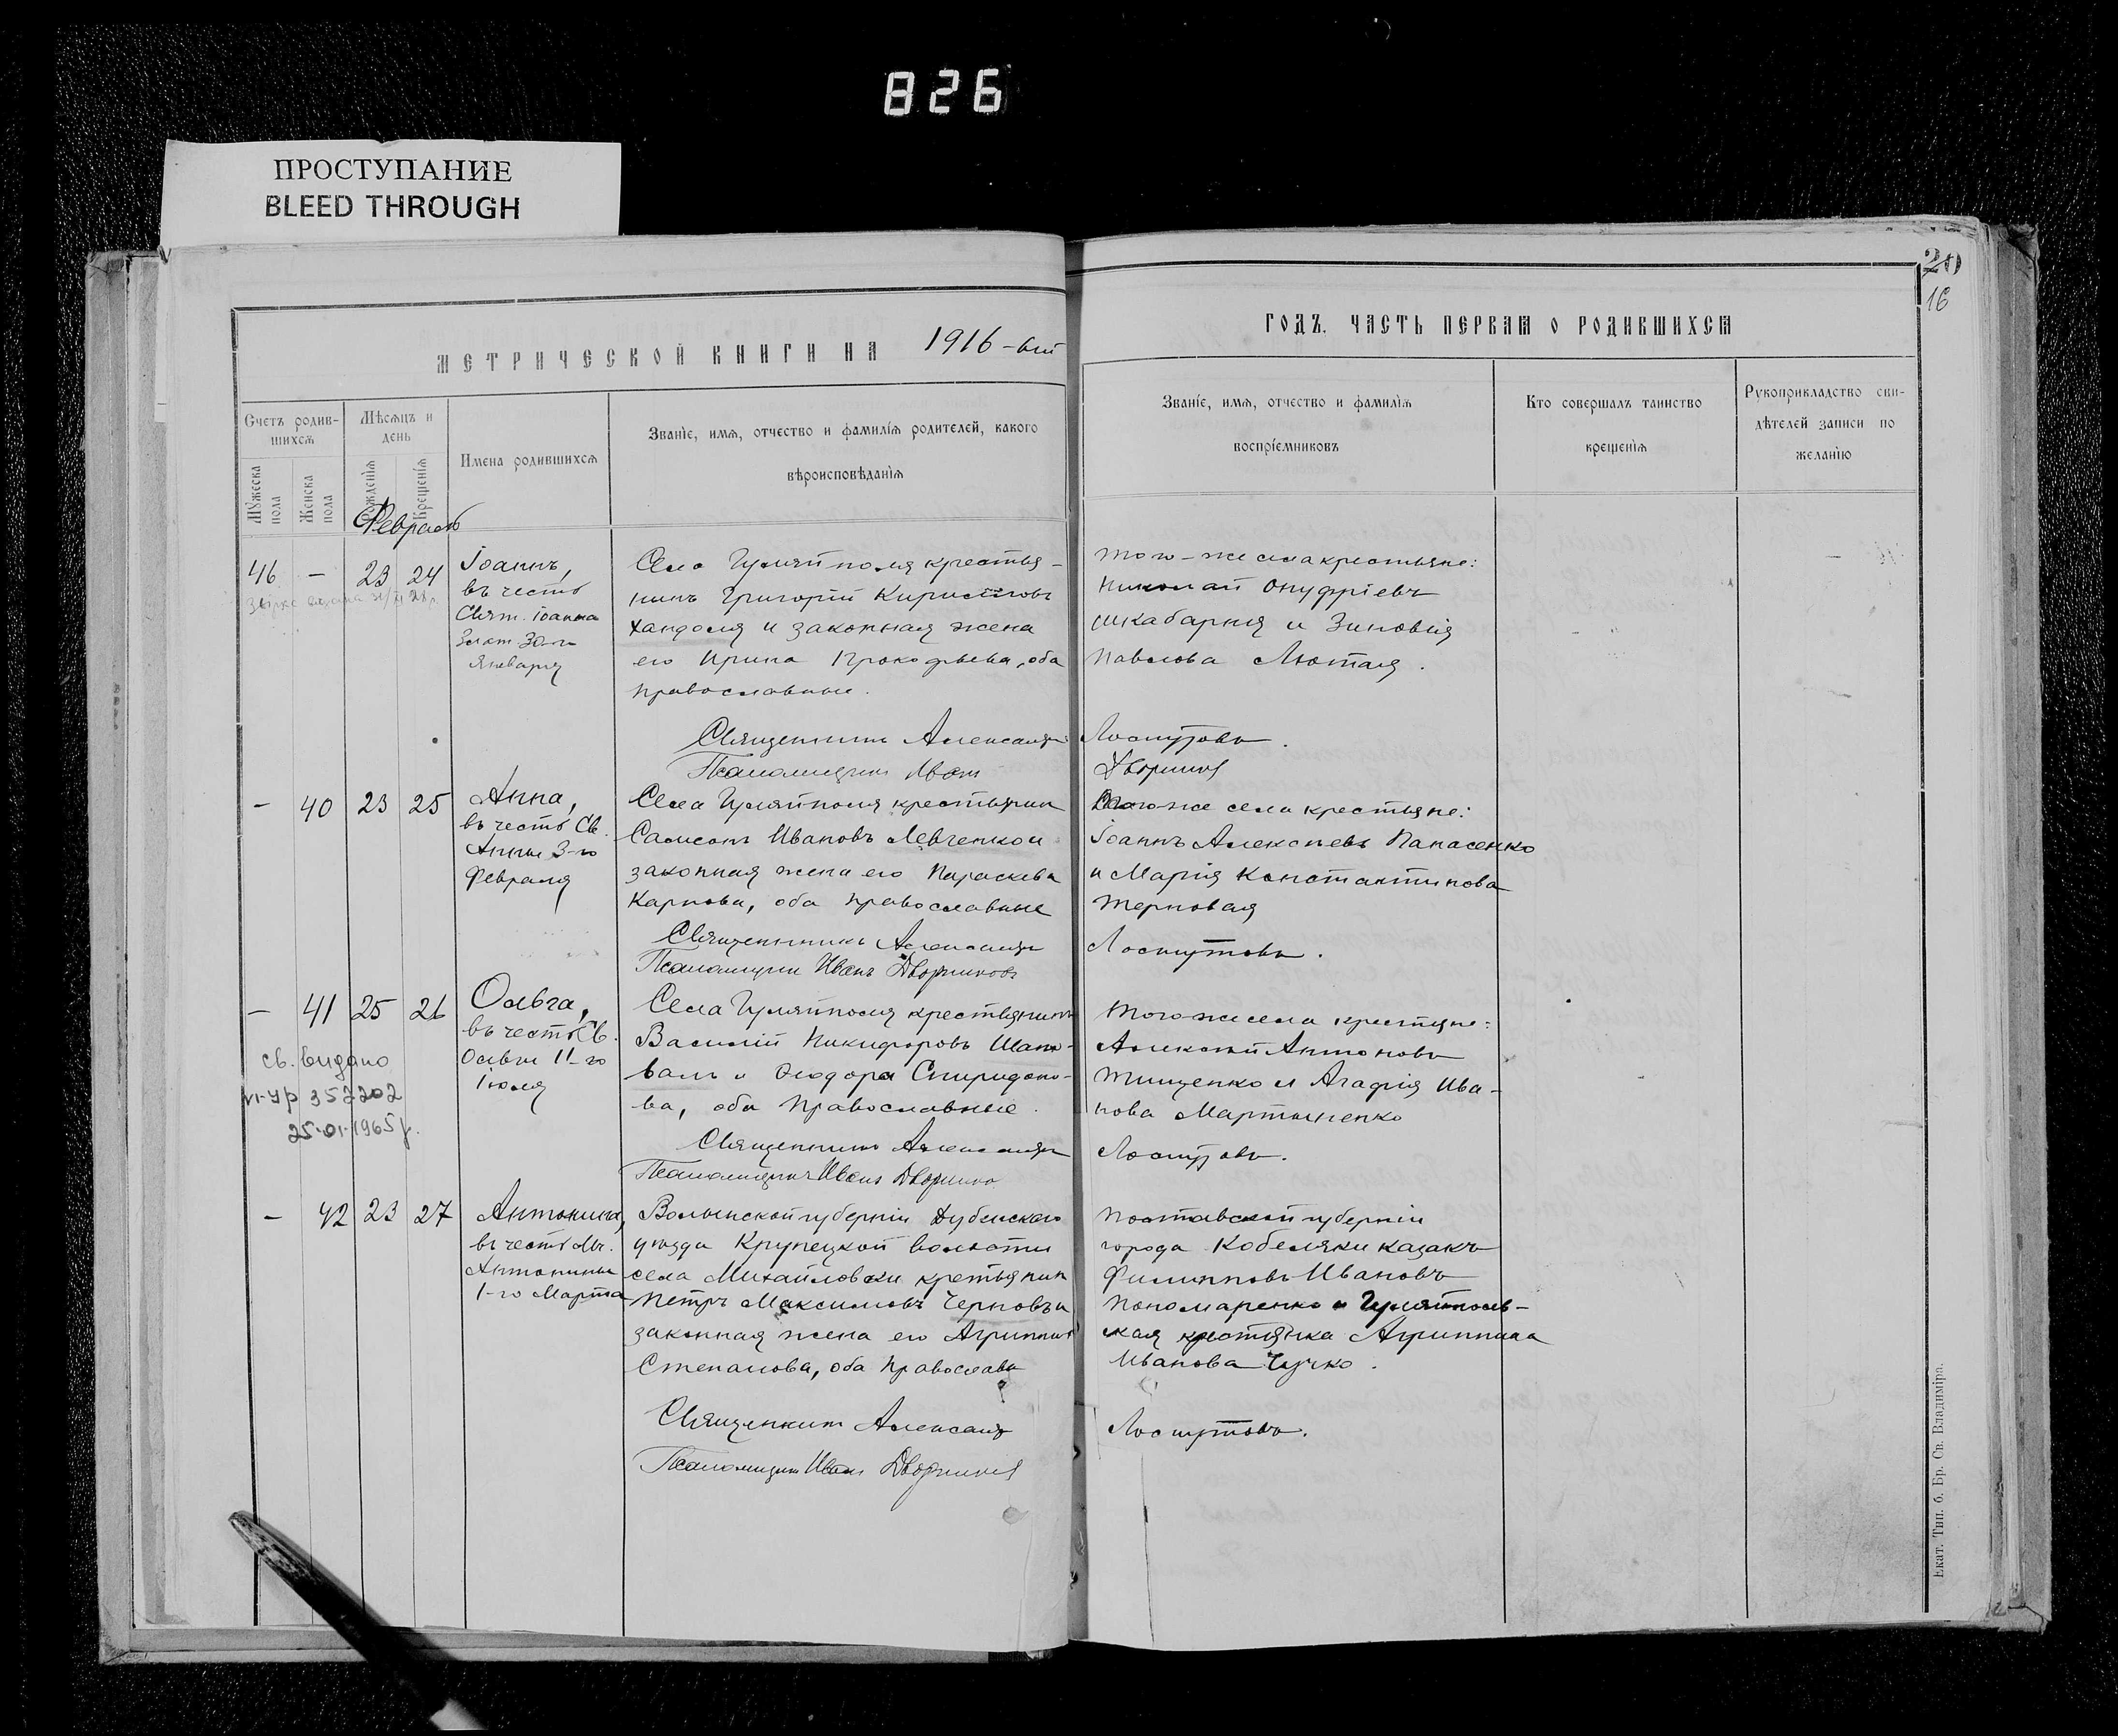 826
ПРОСТУПАНИЕ
BLEED THROUGH
20
16
МЕТРИЧЕСКОЙ КНИГИ НА 1916-ый
ГОДЪ. ЧАСТЬ ПЕРВАЯ О РОДИВШИХСЯ
Счетъ родив-
шихся
Мужеска
пола
Женска
пола
Мѣсяцъ и
день
Рожденія
Крещенія
Имена родившихся
Званіе, имя, отчество и фамилія родителей, какого
вѣроисповѣданія
Званіе, имя, отчество и фамилія
воспріемниковъ
Кто совершалъ таинство
крещенія
Рукоприкладство сви-
дѣтелей записи по
желанію
Февраль
46 – 23 24
Іоаннъ,
въ честь
Свят. Іоанна
Злат. 30-го
Января
Села Гуляйполя крестья-
нинъ Григорій Кирилловъ
Хандоля и законная жена
его Ирина Прокофьева, оба
православные.
Того-же села крестьяне:
Николай Онуфріевъ
Шкабарня и Зиновія
Павлова Лютая.
Священникъ Александръ Лоскутовъ.
Псаломщикъ Иванъ Дворниковъ
– 40 23 25
Анна,
въ честь Св.
Анны 3-го
Февраля
Села Гуляйполя крестьянин
Самсонъ Ивановъ Левченко и
законная жена его Параскева
Карпова, оба православные
Того-же села крестьяне:
Іоаннъ Алексѣевъ Панасенко
и Марія Константинова
Терновая
Священникъ Александръ Лоскутовъ.
Псаломщикъ Иванъ Дворниковъ
– 41 25 26
св. видано
VI-УР 357202
25.01.1965 р.
Ольга,
въ честь Св.
Ольги 11-го
Іюля
Села Гуляйполя крестьянинъ
Василій Никифоровъ Шапо-
валъ и Ѳеодора Спиридоно-
ва, оба православные.
Того-же села крестьяне:
Алексѣй Антоновъ
Тищенко и Агафія Ива-
нова Мартыненко
Священникъ Александръ Лоскутовъ.
Псаломщикъ Иванъ Дворниковъ
– 42 23 27
Антонина,
въ честь Мч.
Антонины
1-го Марта
Волынской губерніи Дубенскаго
уѣзда Крупецкой волости
села Михайловки кретьянин
Петръ Максимовъ Черновъ и
законная жена его Агриппина
Степанова, оба православн
Полтавской губерніи
города Кобеляки казакъ
Филипповъ Ивановъ
Пономаренко и Гуляйполь-
ская крестьянка Агриппина
Иванова Чучко.
Священникъ Александръ Лоскутовъ.
Псаломщикъ Иванъ Дворниковъ
Екат. Тип. б. Бр. Св. Владиміра.